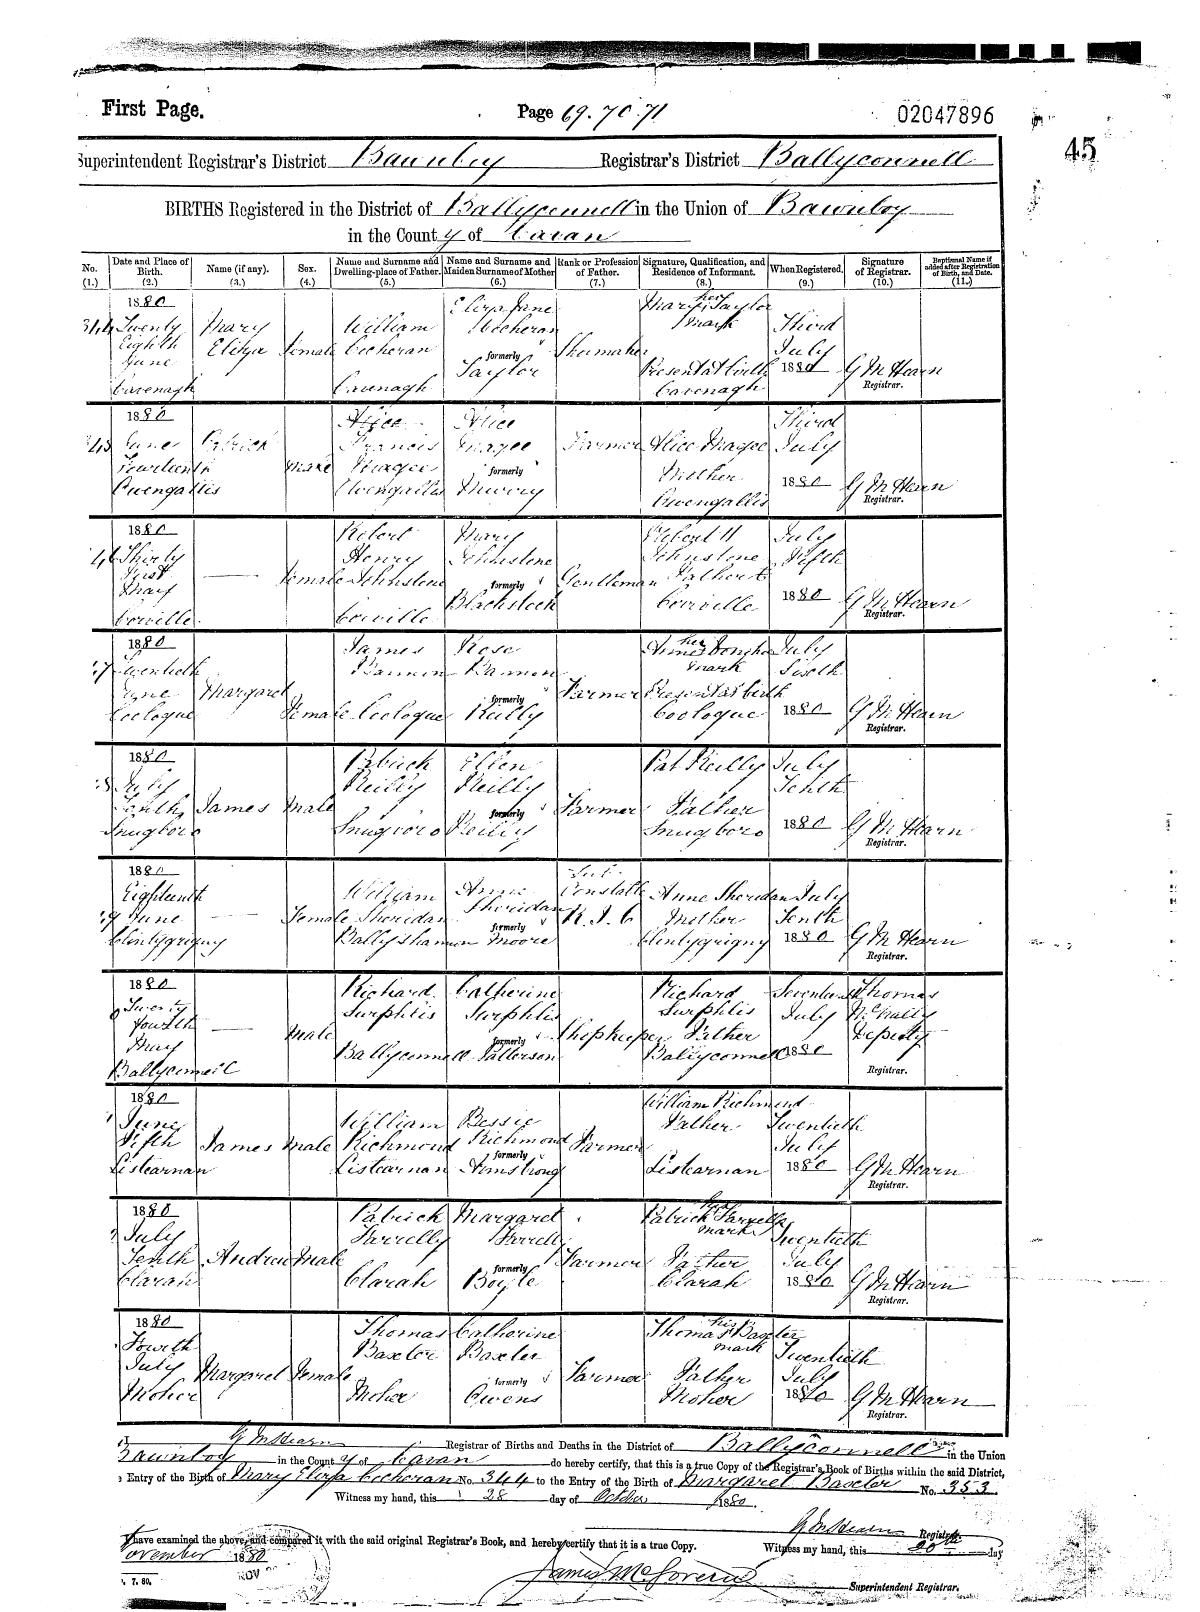 First Page.
Page 69. 70. 71
02047896
45
Superintendent Registrar's District Bawnboy Registrar's District Ballyconnell
BIRTHS Registered in the District of Ballyconnell in the Union of Bawnboy
in the County of Cavan
No. (1.) Date and Place of Birth. (2.) Name (if any). (3.) Sex. (4.) Name and Surname and Dwelling-place of Father. (5.) Name and Surname and Maiden Surname of Mother (6.) Rank or Profession of Father. (7.) Signature, Qualification, and Residence of Informant. (8.) When Registered. (9.) Signature of Registrar. (10.) Baptismal Name if added after Registration of Birth, and Date. (11.)
344 1880 Twenty Eighth June Cavenagh
Mary Eliza
Female
William Cocheran Cavenagh
Eliza Jane Cocheran formerly Taylor
Shoemaker
Mary her Taylor mark Present at birth Cavenagh
Third July 1880
G McHearn Registrar.
45 1880 June Fourteenth Owengallis
Patrick
Male
Alice Francis Magee Owengallis
Alice Magee formerly
Farmer
Alice Magee Mother Owengallis
Third July 1880
G McHearn Registrar.
46 1880 Thirty First May Corville
Female
Robert Henry Johnstone Corville
Mary Johnstone formerly Blackstock
Gentleman
Robert H Johnstone Father Corville
July Fifth 1880
G McHearn Registrar.
7 1880 Twentieth June Cologue
Margaret
Female
James Bannon Cologue
Rose Bannon formerly Reilly
Farmer
her mark Present at birth Cologue
July Sixth 1880
G McHearn Registrar.
8 1880 July Tenth Snugboro
James
Male
Patrick Reilly Snugboro
Ellen Reilly formerly Reilly
Farmer
Pat Reilly Father Snugboro
July Tenth 1880
G McHearn Registrar.
9 1880 Eighteenth June Clintygrigny
Female
William Sheridan Ballyshannon
Anne Sheridan formerly Moore
Sub Constable R. I. C
Anne Sheridan Mother Clintygrigny
July Tenth 1880
G McHearn Registrar.
0 1880 Twenty fourth May Ballyconnell
Male
Richard Surphlis Ballyconnell
Catherine Surphlis formerly Patterson
Shopkeeper
Richard Surphlis Father Ballyconnell
Seventeenth July 1880
Thomas McNally Deputy Registrar.
1880 June Fifth Listearnan
James
Male
William Richmond Listearnan
Bessie Richmond formerly Armstrong
Farmer
William Richmond Father Listearnan
Twentieth July 1880
G McHearn Registrar.
1880 July Tenth Clarah
Andrew
Male
Patrick Farrelly Clarah
Margaret Farrelly formerly Boyle
Farmer
Patrick his Farrelly mark Father Clarah
Twentieth July 1880
G McHearn Registrar.
1880 Fourth July Moher
Margaret
Female
Thomas Baxter Moher
Catherine Baxter formerly Owens
Farmer
Thomas his Baxter mark Father Moher
Twentieth July 1880
G McHearn Registrar.
I G McHearn Registrar of Births and Deaths in the District of Ballyconnell in the Union
Bawnboy in the County of Cavan do hereby certify, that this is a true Copy of the Registrar's Book of Births within the said District,
e Entry of the Birth of Mary Eliza Cocheran No. 344 to the Entry of the Birth of Margaret Baxter No. 353
Witness my hand, this 28 day of October 1880.
G McHearn Registrar.
I have examined the above, and compared it with the said original Registrar's Book, and hereby certify that it is a true Copy. Witness my hand, this 20th day
November 1880
NOV
James McGovern Superintendent Registrar.
7. 80.